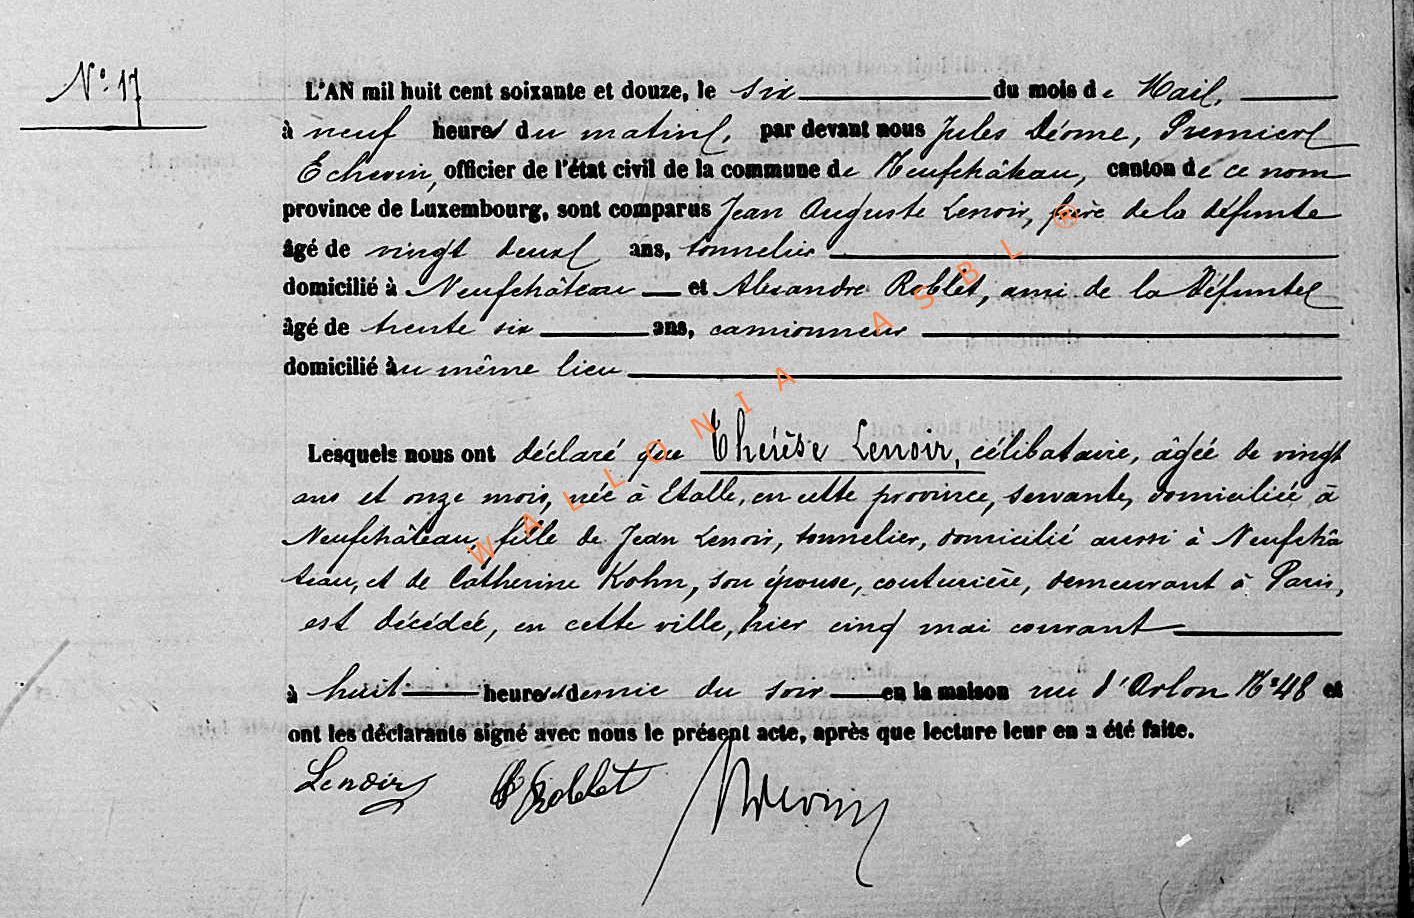 N° 17
L'AN mil huit cent soixante et douze, le six du mois de Mai,
à neuf heures du matin, par devant nous Jules Déome, Premier
Echevin, officier de l'état civil de la commune de Neufchâteau, canton de ce nom
province de Luxembourg, sont comparus Jean Auguste Lenoir, frère de la défunte
âgé de vingt deux ans, tonnelier
domicilié à Neufchâteau et Alexandre Roblet, ami de la défunte
âgé de trente six ans, camionneur
domicilié au même lieu
Lesquels nous ont déclaré que Thérèse Lenoir, célibataire, âgée de vingt
ans et onze mois, née à Etalle, en cette province, servante, domiciliée à
Neufchâteau, fille de Jean Lenoir, tonnelier, domicilié aussi à Neufchâ
teau, et de Catherine Kohn, son épouse, couturière, demeurant à Paris,
est décédée, en cette ville, hier cinq mai courant
à huit heures demie du soir en la maison rue d'Arlon N° 48 et
ont les déclarants signé avec nous le présent acte, après que lecture leur en a été faite.
Lenoir Roblet
WALLONIA ASBL ®